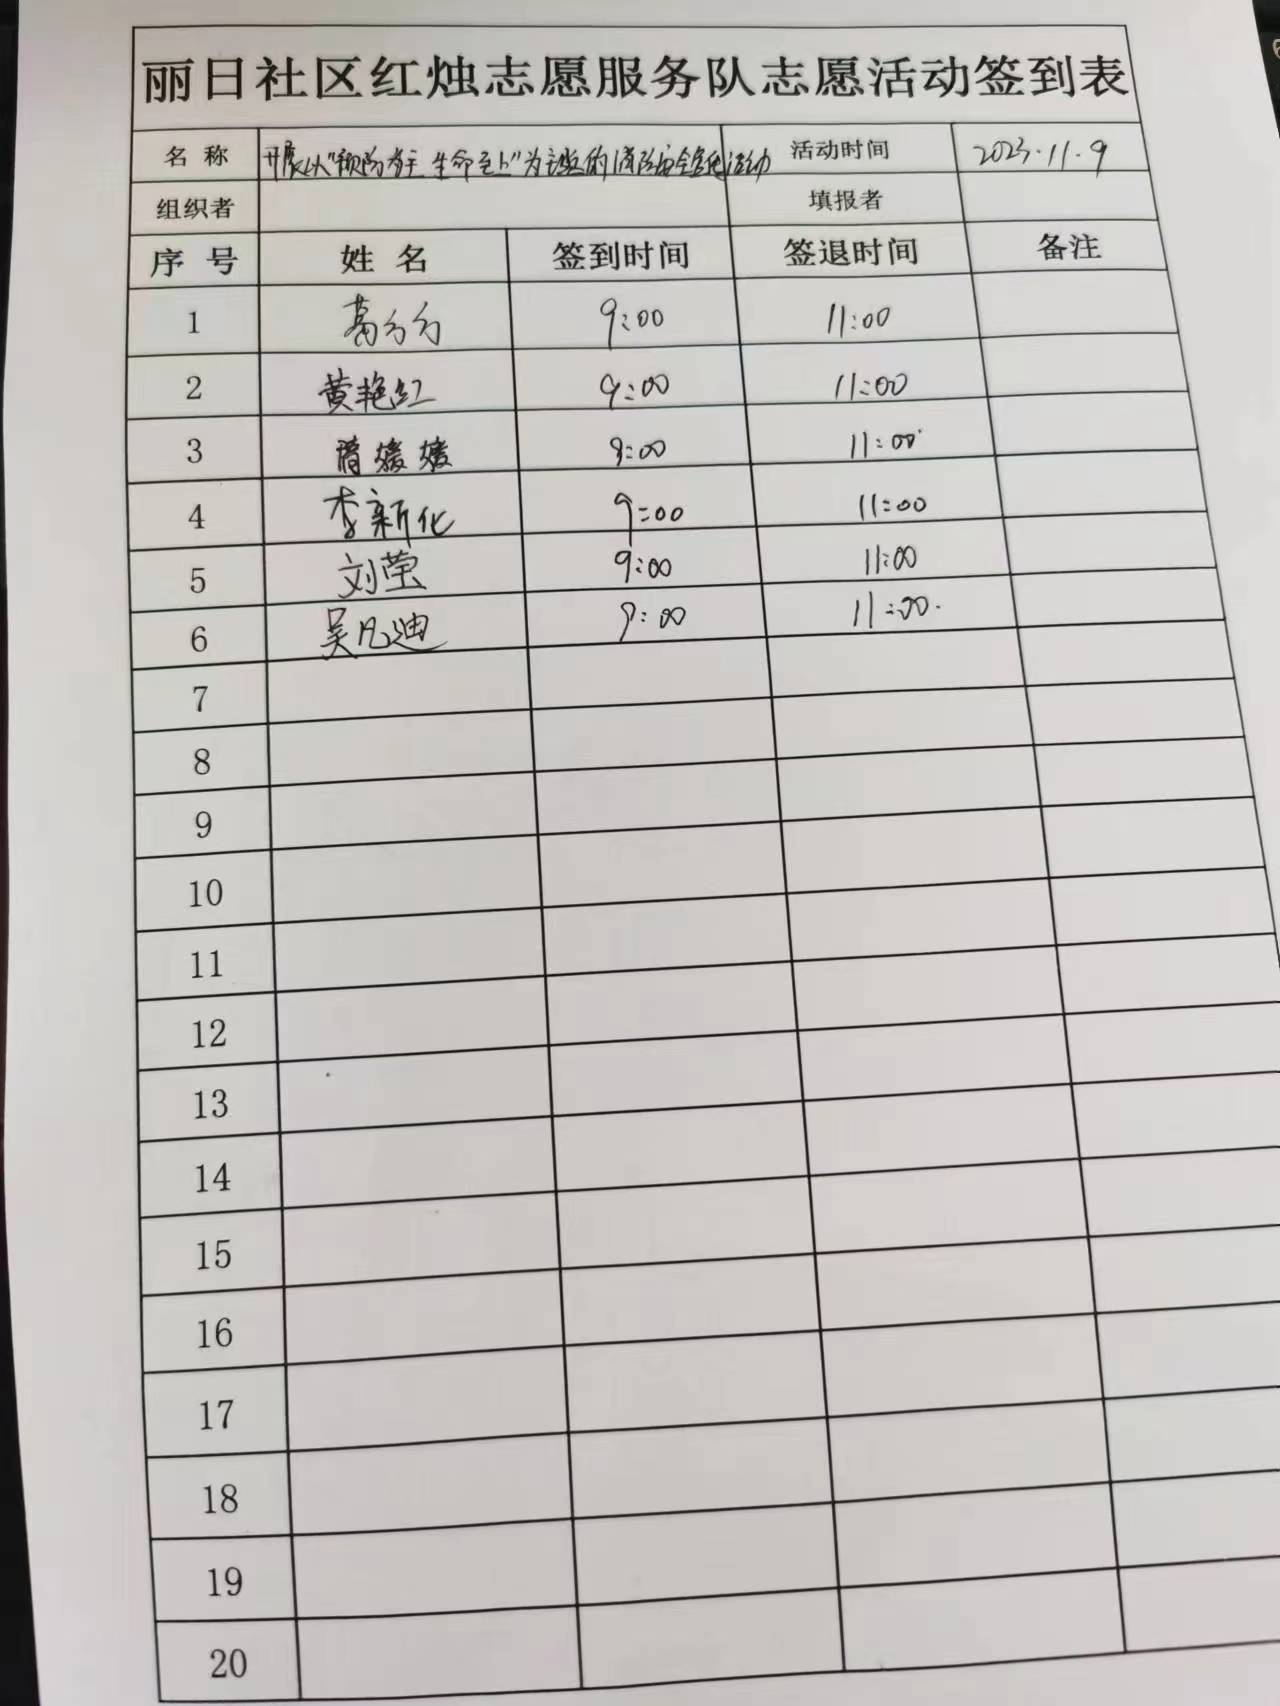 丽日社区红烛志愿服务队志愿活动签到表
名 称 开展以"预防为主 生命至上"为主题的消防安全宣传活动 活动时间 2023.11.9
组织者 填报者
序 号 姓 名 签到时间 签退时间 备注
1 葛分分 9:00 11:00
2 黄艳红 9:00 11:00
3 媛媛 9:00 11:00
4 李新化 9:00 11:00
5 刘莹 9:00 11:00
6 吴凡迪 9:00 11:00
7
8
9
10
11
12
13
14
15
16
17
18
19
20